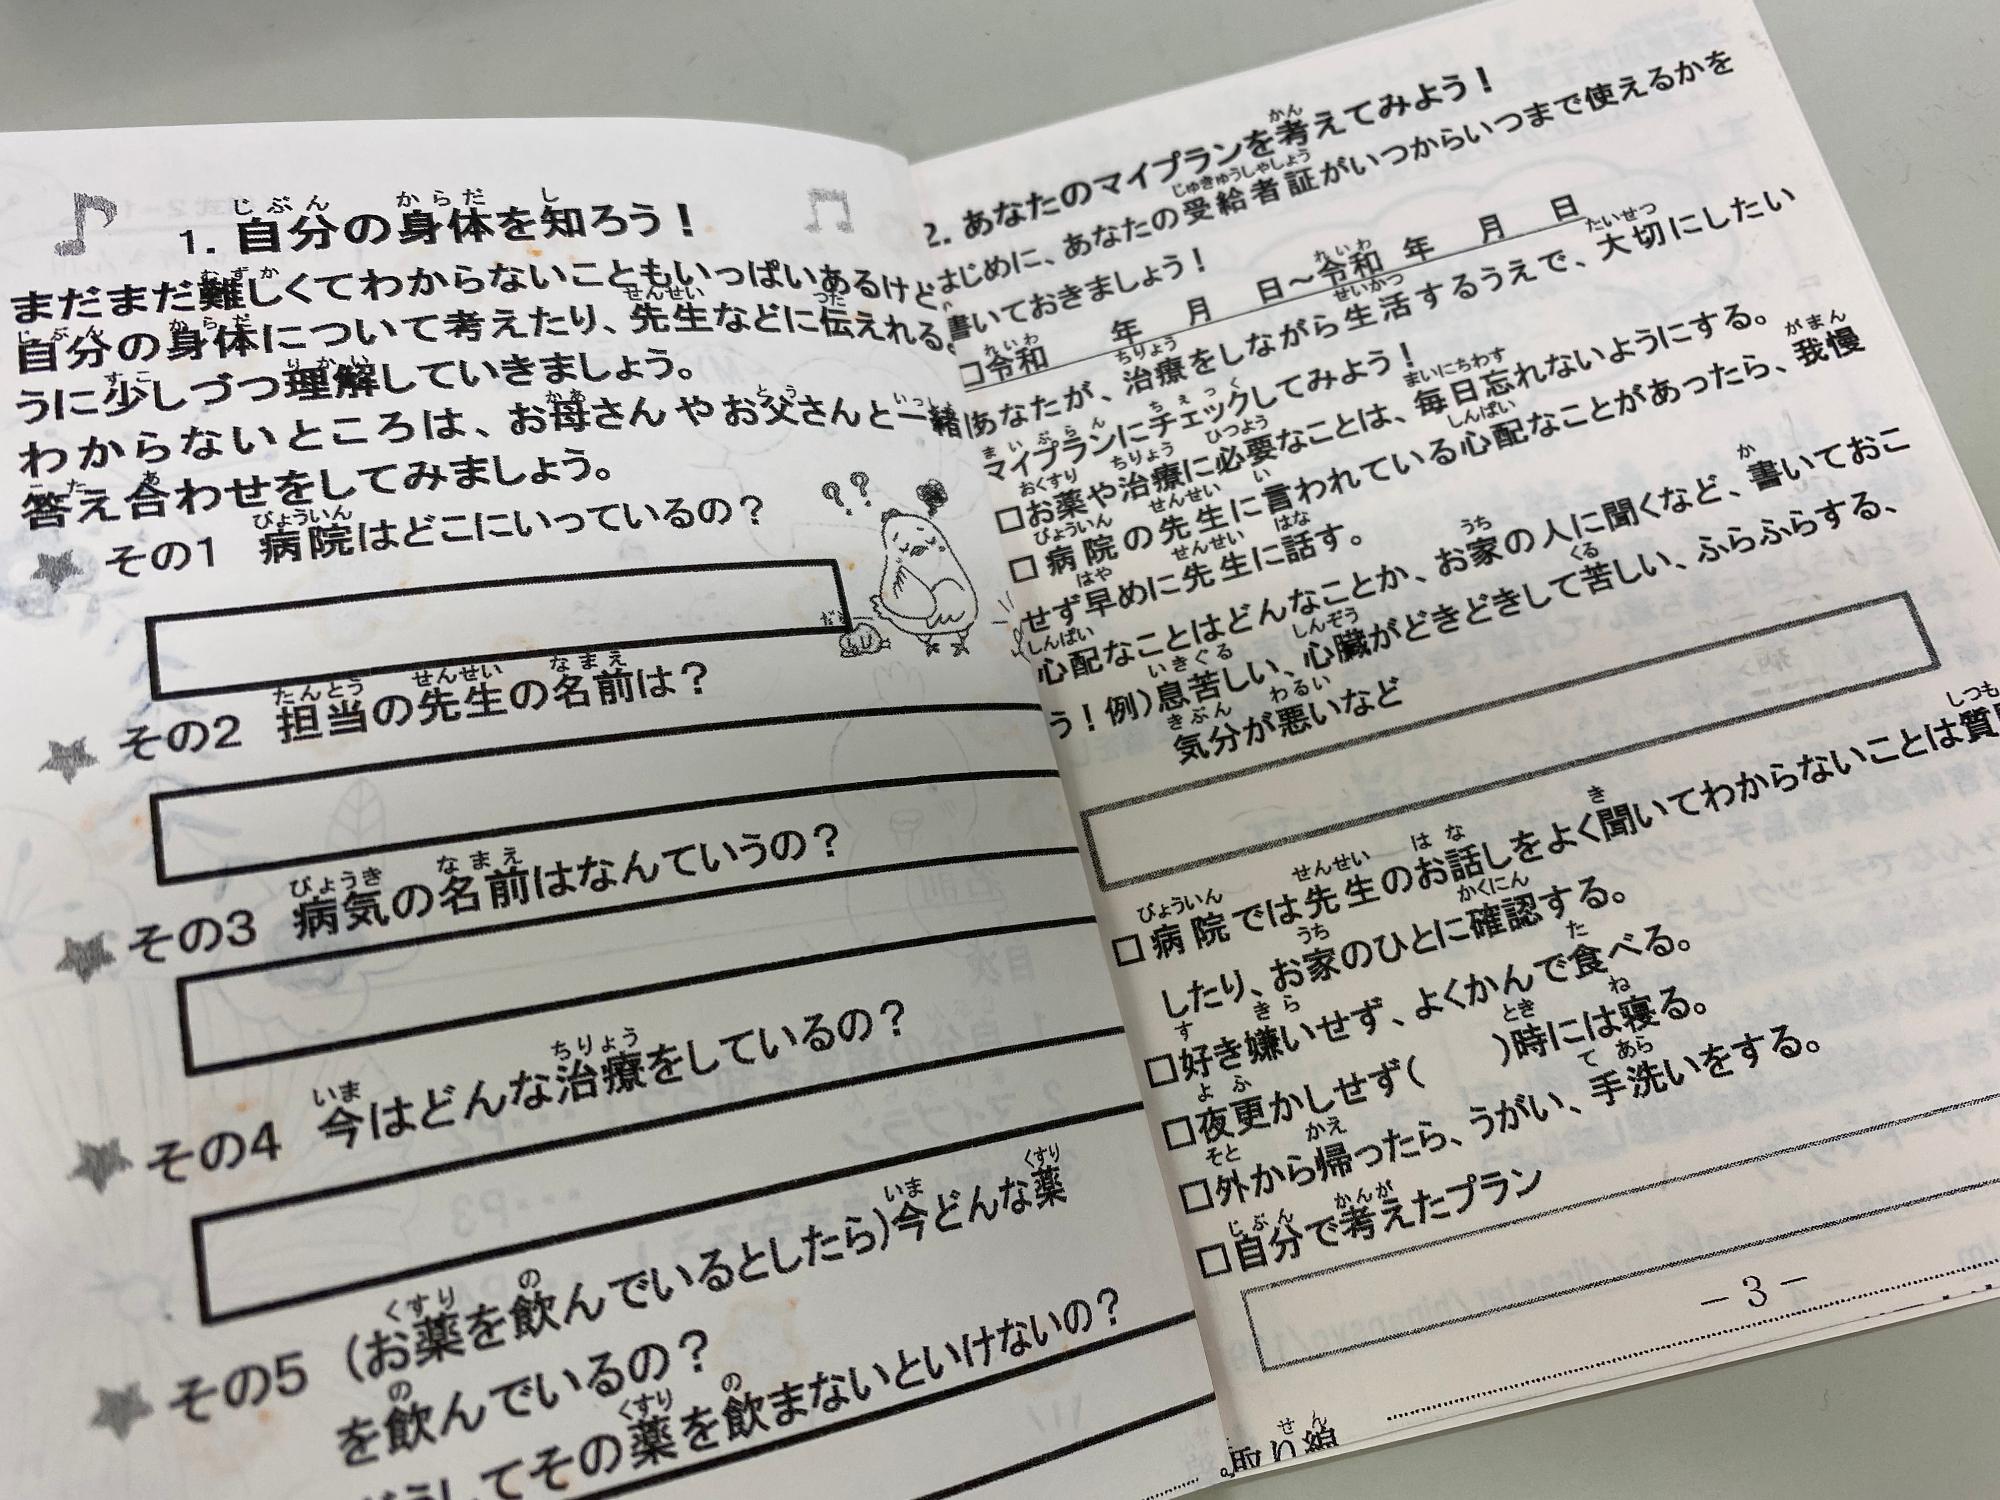 1. 自分の身体を知ろう！
まだまだ難しくてわからないこともいっぱいあるけど、
自分の身体について考えたり、先生などに伝えれる
うに少しづつ理解していきましょう。
わからないところは、お母さんやお父さんと一緒
答え合わせをしてみましょう。
その1 病院はどこにいっているの？
??
その2 担当の先生の名前は？
その3 病気の名前はなんていうの？
その4 今はどんな治療をしているの？
その5 (お薬を飲んでいるとしたら)今どんな薬
を飲んでいるの？
どうしてその薬を飲まないといけないの？
2. あなたのマイプランを考えてみよう！
はじめに、あなたの受給者証がいつからいつまで使えるかを
書いておきましょう！
□令和 年 月 日～令和 年 月 日
あなたが、治療をしながら生活するうえで、大切にしたい
マイプランにチェックしてみよう！
□お薬や治療に必要なことは、毎日忘れないようにする。
□病院の先生に言われている心配なことがあったら、我慢
せず早めに先生に話す。
心配なことはどんなことか、お家の人に聞くなど、書いておこ
う！例)息苦しい、心臓がどきどきして苦しい、ふらふらする、
気分が悪いなど
□病院では先生のお話しをよく聞いてわからないことは質
したり、お家のひとに確認する。
□好き嫌いせず、よくかんで食べる。
□夜更かしせず( )時には寝る。
□外から帰ったら、うがい、手洗いをする。
□自分で考えたプラン
－3－
取り線